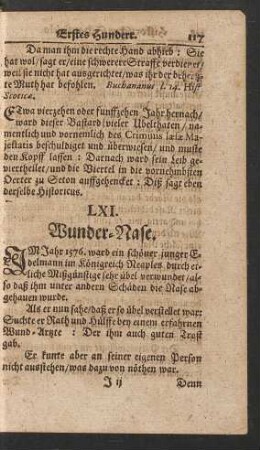 Erstes Hundert. 117
Da man ihm die rechte Hand abhieb: Sie
hat wol/ sagt er/ eine schwerere Straffe verdienet/
weil sie nicht hat ausgerichtet/ was ihr der behertz-
te Muth hat befohlen. Buchananus l. 14. Hist
Scoticæ.
Etwa vierzehen oder funffzehen Jahr hernach/
ward dieser Bastard vieler Ubelthaten/ na-
mentlich und vornemlich des Criminis læsæ Ma-
jestatis beschuldiget und überwiesen/ und muste
den Kopff lassen: Darnach ward sein Leib ge-
viertheilet/ und die Viertel in die vornehmbsten
Oerter zu Seton auffgehencket: Diß sagt eben
derselbe Historicus.
LXI.
Wunder-Nase.
IM Jahr 1576. ward ein schöner junger E-
delmann im Königreich Neaples durch et-
liche Mißgünstige sehr übel verwundet/ al-
so daß ihm unter andern Schäden die Nase ab-
gehauen wurde.
Als er nun sahe/ daß er so übel verstellet war:
Suchte er Rath und Hülffe bey einem erfahrnen
Wund-Artzte: Der ihm auch guten Trost
gab.
Er kunte aber an seiner eigenen Person
nicht ausstehen/ was dazu von nöthen war.
J ij Denn